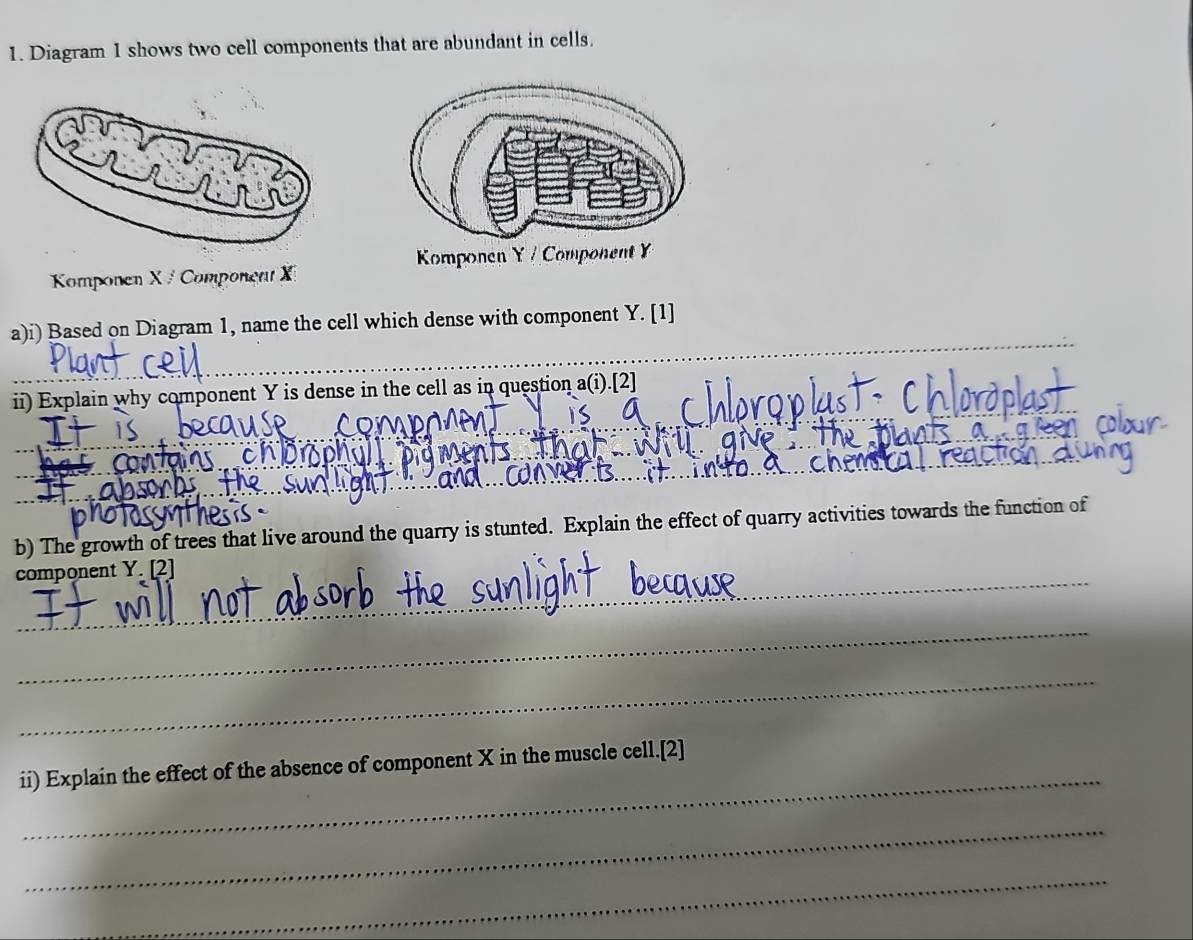 1. Diagram 1 shows two cell components that are abundant in cells.
Komponen X / Component X
Komponen Y / Component Y
a)i) Based on Diagram 1, name the cell which dense with component Y. [1]
Plant cell
ii) Explain why component Y is dense in the cell as in question a(i).[2]
It is because component Y is a chloroplast. Chloroplast
has contains chlorophyll pigments that will give the plants a green colour
It absorbs the sunlight and converts it into a chemical reaction during
photosynthesis.
b) The growth of trees that live around the quarry is stunted. Explain the effect of quarry activities towards the function of
component Y. [2]
It will not absorb the sunlight because
ii) Explain the effect of the absence of component X in the muscle cell.[2]